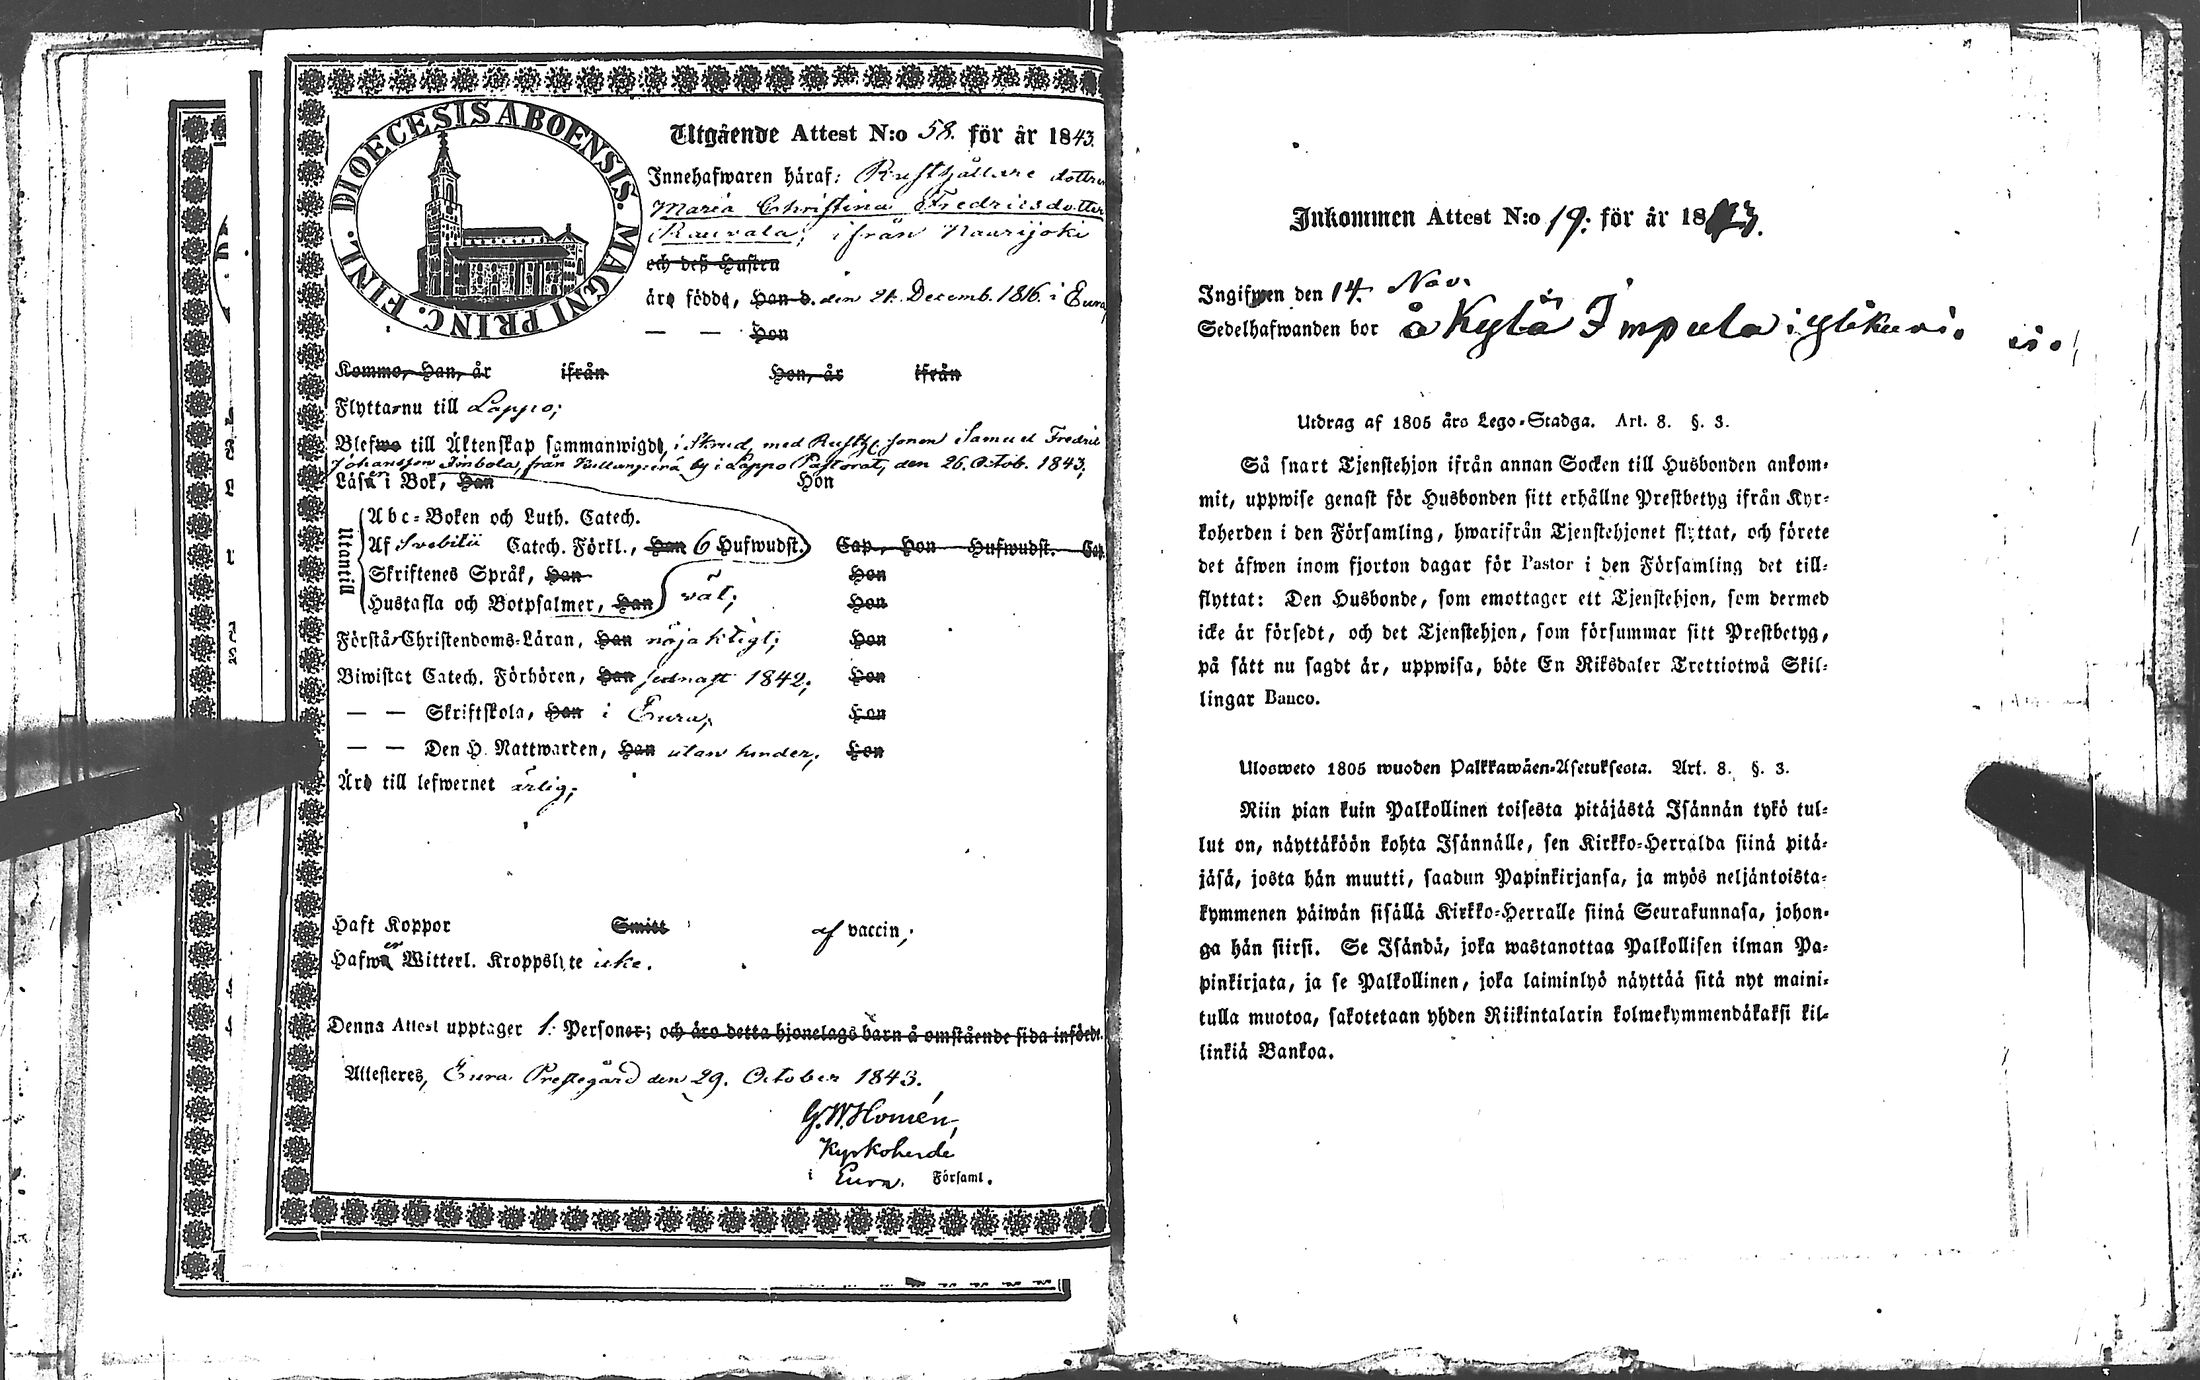 DIOECESIS ABOENSIS. MAGNI PRINC. FINL.
Utgående Attest N:o 58. för år 1843.
Innehafwaren häraf: Rusthållare dottren
Maria Christina Fredricsdotter
Rauvala, ifrån Naurijoki
och deß Hustru
äro födde, Han d. den 21. Decemb. 1816. i Eura,
— — Hon
Kommo, Han, år ifrån Hon, år ifrån
Flyttar nu till Lappo;
Blefwo till Äktenskap sammanwigde, i Strud, med Rusth. sonen Samuel Fredric
Johansson Imbola, från by i Lappo Pastorat, den 26. Octob. 1843;
Läsa i Bok, Han Hon
Utantill
Abc-Boken och Luth. Catech.
Af Svebilii Catech. Förkl., Han 6 Hufwudst. Cap., Hon Hufwudst. Cap.
Skriftenes Språk, Han Hon
Hustafla och Botpsalmer, Han väl; Hon
Förstår Christendoms-Läran, Han nöjaktigt; Hon
Biwistat Catech. Förhören, Han sednast 1842; Hon
— — Skriftskola, Han i Eura; Hon
— — Den H. Nattwarden, Han utan hinder; Hon
Äro till lefwernet ärlig;
Haft Koppor Smitt af vaccin;
Hafwa Witterl. Kroppslyte icke.
Denna Attest upptager 1. Personer; och äro detta hjonelags barn å omstående sida införde.
Attesteres, Eura Prestegård den 29. October 1843.
G.W. Homén,
Kyrkoherde
i Eura. Församl.
Inkommen Attest N:o 19: för år 1843.
Ingifwen den 14. Nov.
Sedelhafwanden bor å Kylä Impula i
Utdrag af 1805 års Lego-Stadga. Art. 8. §. 3.
Så snart Tjenstehjon ifrån annan Socken till Husbonden ankom-
mit, uppwise genast för Husbonden sitt erhållne Prestbetyg ifrån Kyr-
koherden i den Församling, hwarifrån Tjenstehjonet flyttat, och förete
det äfwen inom fjorton dagar för Pastor i den Församling det till-
flyttat: Den Husbonde, som emottager ett Tjenstehjon, som dermed
icke är försedt, och det Tjenstehjon, som försummar sitt Prestbetyg,
på sätt nu sagdt är, uppwisa, böte En Riksdaler Trettiotwå Skil-
lingar Banco.
Ulosweto 1805 wuoden Palkkawäen-Asetuksesta. Art. 8. §. 3.
Niin pian kuin Palkollinen toisesta pitäjästä Isännän tykö tul-
lut on, näyttäköön kohta Isännälle, sen Kirkko-Herralda siinä pitä-
jäsä, josta hän muutti, saadun Papinkirjansa, ja myös neljäntoista-
kymmenen päiwän sisällä Kirkko-Herralle siinä Seurakunnasa, johon-
ga hän siirsi. Se Isändä, joka wastanottaa Palkollisen ilman Pa-
pinkirjata, ja se Palkollinen, joka laiminlyö näyttää sitä nyt maini-
tulla muotoa, sakotetaan yhden Riikintalarin kolmekymmendäkaksi kil-
linkiä Bankoa.